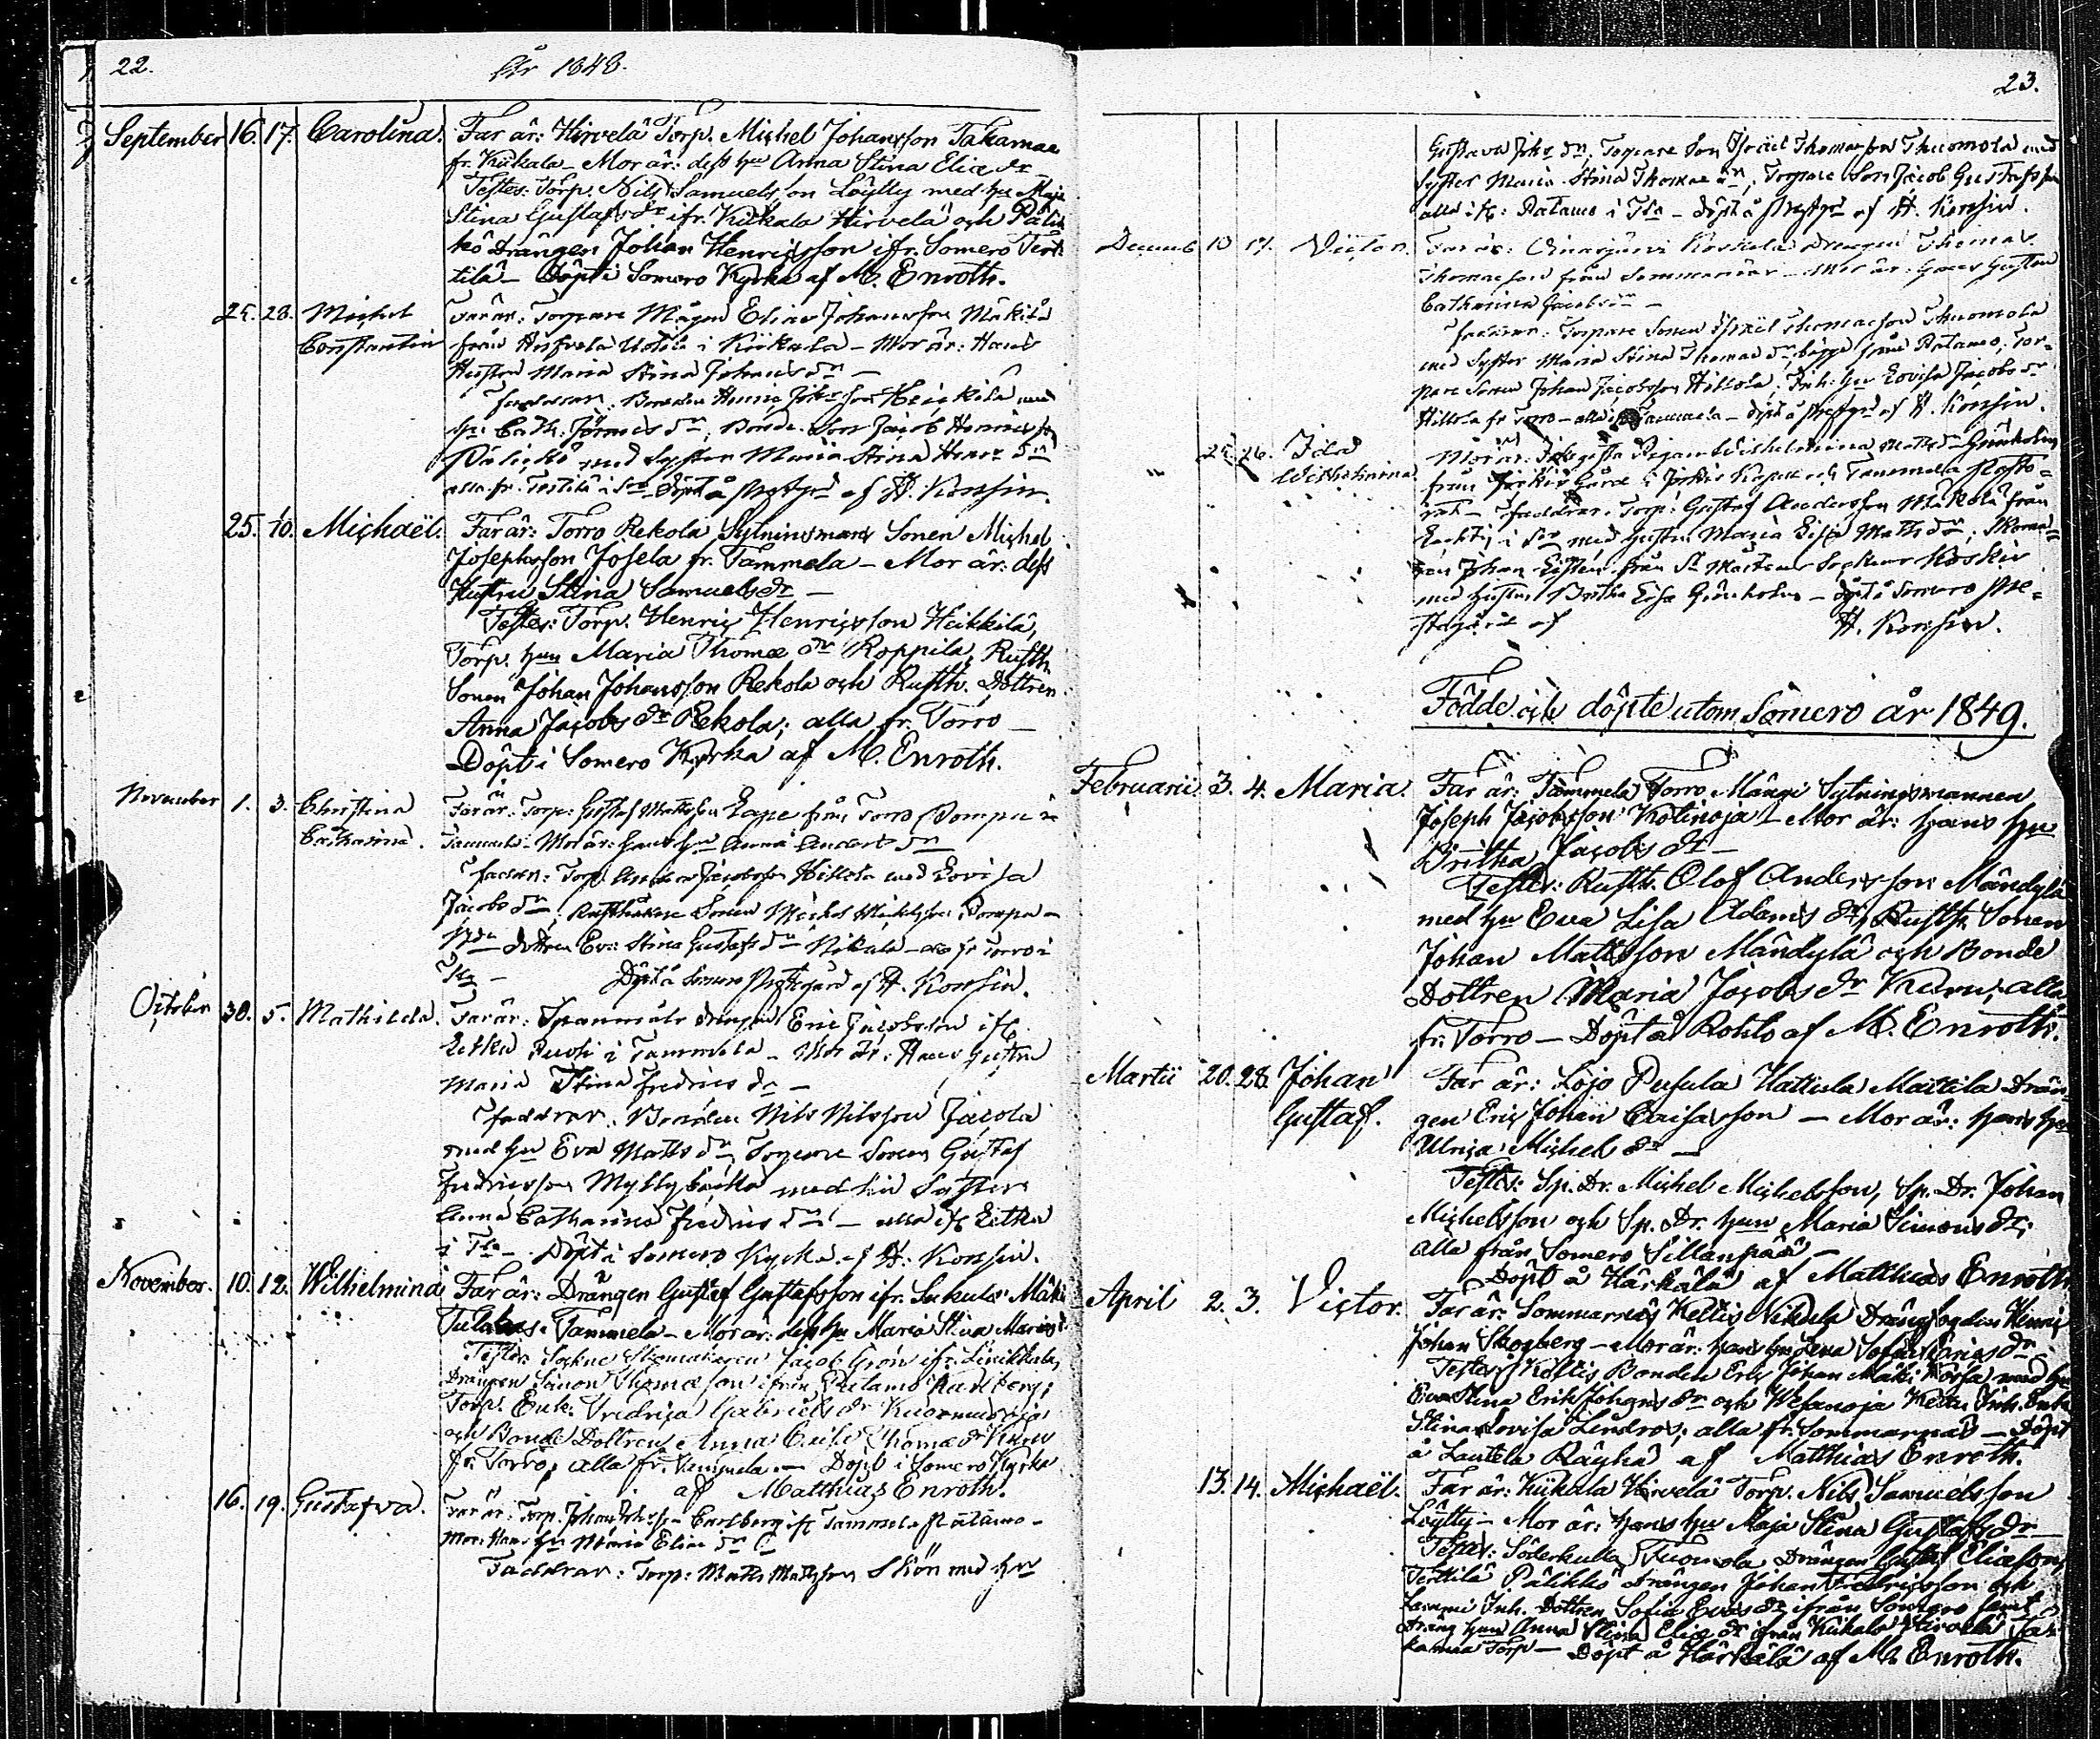 22.
År 1848.
September 16. 17. Carolina. Far är: Hirvelä Torp. Michel Johansson Takamaa
fr. Kiikala – Mor är: dess hu Anna Stina Eliae dr –
Testes: Torp. Nils Samuelsson Löytty med hu Maja
Stina Gustafs dr ifr. Kiikala Hirvelä och Pälik
kö Drängen Johan Henricsson ifr. Somero Tert
tilä – Döpt i Somero Kyrka af M. Enroth.
24. 28. Michel Far är: Torpare Mågen Elias Johansson Mäkilä
Constantin från Hirfvela i Kiikala – Mor är: Hans
Hustru Maria Stina Johans dr –
Faddrar: Bonden Henric Johsson Heikkilä med
Cath. dr, Bonde Son Jacob Henricsson
Pälickö med Syster Maria Stina Henr dr
alla fr. Terttilä i Sro Döpt å Prestgrd af H. Konsin.
25. 10. Michaël. Far är: Torro Rekola Sytningsmans Sonen Michel
Josephsson Josela fr. Tammela – Mor är: dess
Hustru Stina Samuels dr –
Testes: Torp. Henric Henricsson Heikkilä,
Torp. hun Maria Thomæ dr Roppila, Rusth.
Sonen Johan Johansson Rekola och Rusth. Dottren
Anna Jacobs dr Rekola; alla fr. Torro –
Döpt i Somero Kyrka af M. Enroth.
November 1. 3. Christina Far är: Torp: Gustaf Mattsson Lape från Torro Pompu i
Catharina. Tammela – Mor är: hans hu Anna Anders dr
Faddrar: Torp. Anders Jacobsson Hillola med Lovisa
Jacobs dr, Rusthållare Sonen Michel Michelsson Pompu –
dottren Eva Stina Gustafs dr Nikula – alla fr Torro i
Tla – Döpt å Somero Prestgård af H. Konsin.
October 30. 5. Mathilda. Far är: Spanmåls drängen Eric Jacobsson ifr.
Letku i Tammela – Mor är: Hans hustru
Maria Stina Fredrics dr –
Faddrar: Bonden Nils Nilsson Jacola
med hu Eva Matts dr, Torpare Sonen Gustaf
Fredricsson Myllybäckä med sin Syster
Anna Catharina Fredrics dr – alla ifr Letku
i Tla – Döpt i Somero Kyrka af H. Konsin.
November. 10. 12. Wilhelmina Far är: Drängen Gustaf Gustafsson ifr. Sukula Mäki
Tammela – Mor är: dess hu Maria Stina
Testes: Sockne Skomakaren Jacob Grön ifr. Linikkala,
Drängen Simon Thomæson ifrån Ratamo Karlberg;
Torp. Enk. Fredrica Gabriels dr Kuormusoja
och Bonde Dottren Anna Caisa Thomæ dr
fr. Torro, alla fr. Tammela – Döpt i Somero Kyrka
af Matthias Enroth.
16. 19. Gustafva. Far är: Torp. Johan Johsson Carlberg ifr Tammela Ratamo –
Mor: Hans hu Maria Eliae dr
Faddrar: Torp: Matts Mattsson Skön med hu
23.
Gustava Johs dr, Torpare Son Israël Thomasson Thuomola med
Syster Maria Stina Thomæ dr, Torpare Son Jacob Gustafsson
alla ifr: Ratamo i Tla – döpt å Prestgrd af H. Konsin.
Decemb 10 17. Victor. Far är: Koskela drengen Thomas
Thomasson från Sommarnäs – Mor är: hans hustru
Catharina Jacobs dr –
Faddrar: Torpare Sonen Israël Thomasson Thuomola
med Syster Maria Stina Thomæ dr, bägge från Ratamo, Tor-
pare Sonen Johan Jacobsson Hillola, Inh. hu Lovisa Jacobs dr
Hillola fr Torro – alla i Tammela – döpt å Prestgrd af H. Konsin.
" 25 26. Ida Mor är: Pigan Wilhelmina Matts dr Grönholm
Wilhelmina från Jockis Gård i Jockis Kapell och Tammela Pasto-
rat – Faddrar: Torp: Gustaf Andersson Mäkilä från
i Sro med hustru Maria Lisa Matts dr;
Johan från St Mårtens Sockens Koskis
med hustru Britha Lisa Grönholm – döpt å Somero Pre-
stegård af H. Konsin.
Födde och döpte utom Somero år 1849.
Februarii. 3. 4. Maria. Far är: Tammela Torro Mängi Sytningsmannen
Joseph Jacobsson Kotinoja – Mor är: hans hu
Britha Jacobs dr –
Testes: Rusth. Olof Andersson Mändylä
med hu Eva Lisa Adams dr, Rusth. Sonen
Johan Mattsson Mändylä och Bonde
Dottren Maria Jacobs dr Karu; alla
fr. Torro – Döpt å Rohto af M. Enroth.
Martii 20. 28. Johan Far är: Lojo Pusula Hattula Mattila Drän
Gustaf. gen Eric Johan Caisasson – Mor är: hans hu
Ulrica Michels dr –
Testes: Sp. Dr. Michel Michelsson, Sp. Dr. Johan
Michelsson och Sp. Dr. hun Maria Simons dr;
alla från Somero Sillanpää –
Döpt å Härkälä af Matthias Enroth
April 2. 3. Victor. Far är: Sommarnäs Keltis Nikula Drängfogden Henric
Johan Skogberg – Mor är: hans hu Lena Sofia Henrics dr –
Testes: Keltis Bonden Eric Johan Mäki Korla med hu
Eva Stina Eriks Johans dr och Wesanoja Inh. Enk.
Stina Lovisa Lindros; alla fr. Sommarnäs – Döpt
å Lautela Räyhä af Matthias Enroth.
13. 14. Michaël. Far är: Kiikala Hirvelä Torp. Nils Samuelsson
Löytty – Mor är: hans hu Maja Stina Gustafs dr –
Testes: Söderkulla Tuomola Drängen Gustaf Eliasson,
Terttilä Pälikkö Drängen Johan Fredricsson och
Inh. Dottren Sofia Evas dr ifrån Somero samt
Dräng hun Anna Stina Eliæ dr ifrån Kiikala Hirvelä Ta-
kamaa Torp – Döpt å Härkälä af M. Enroth.